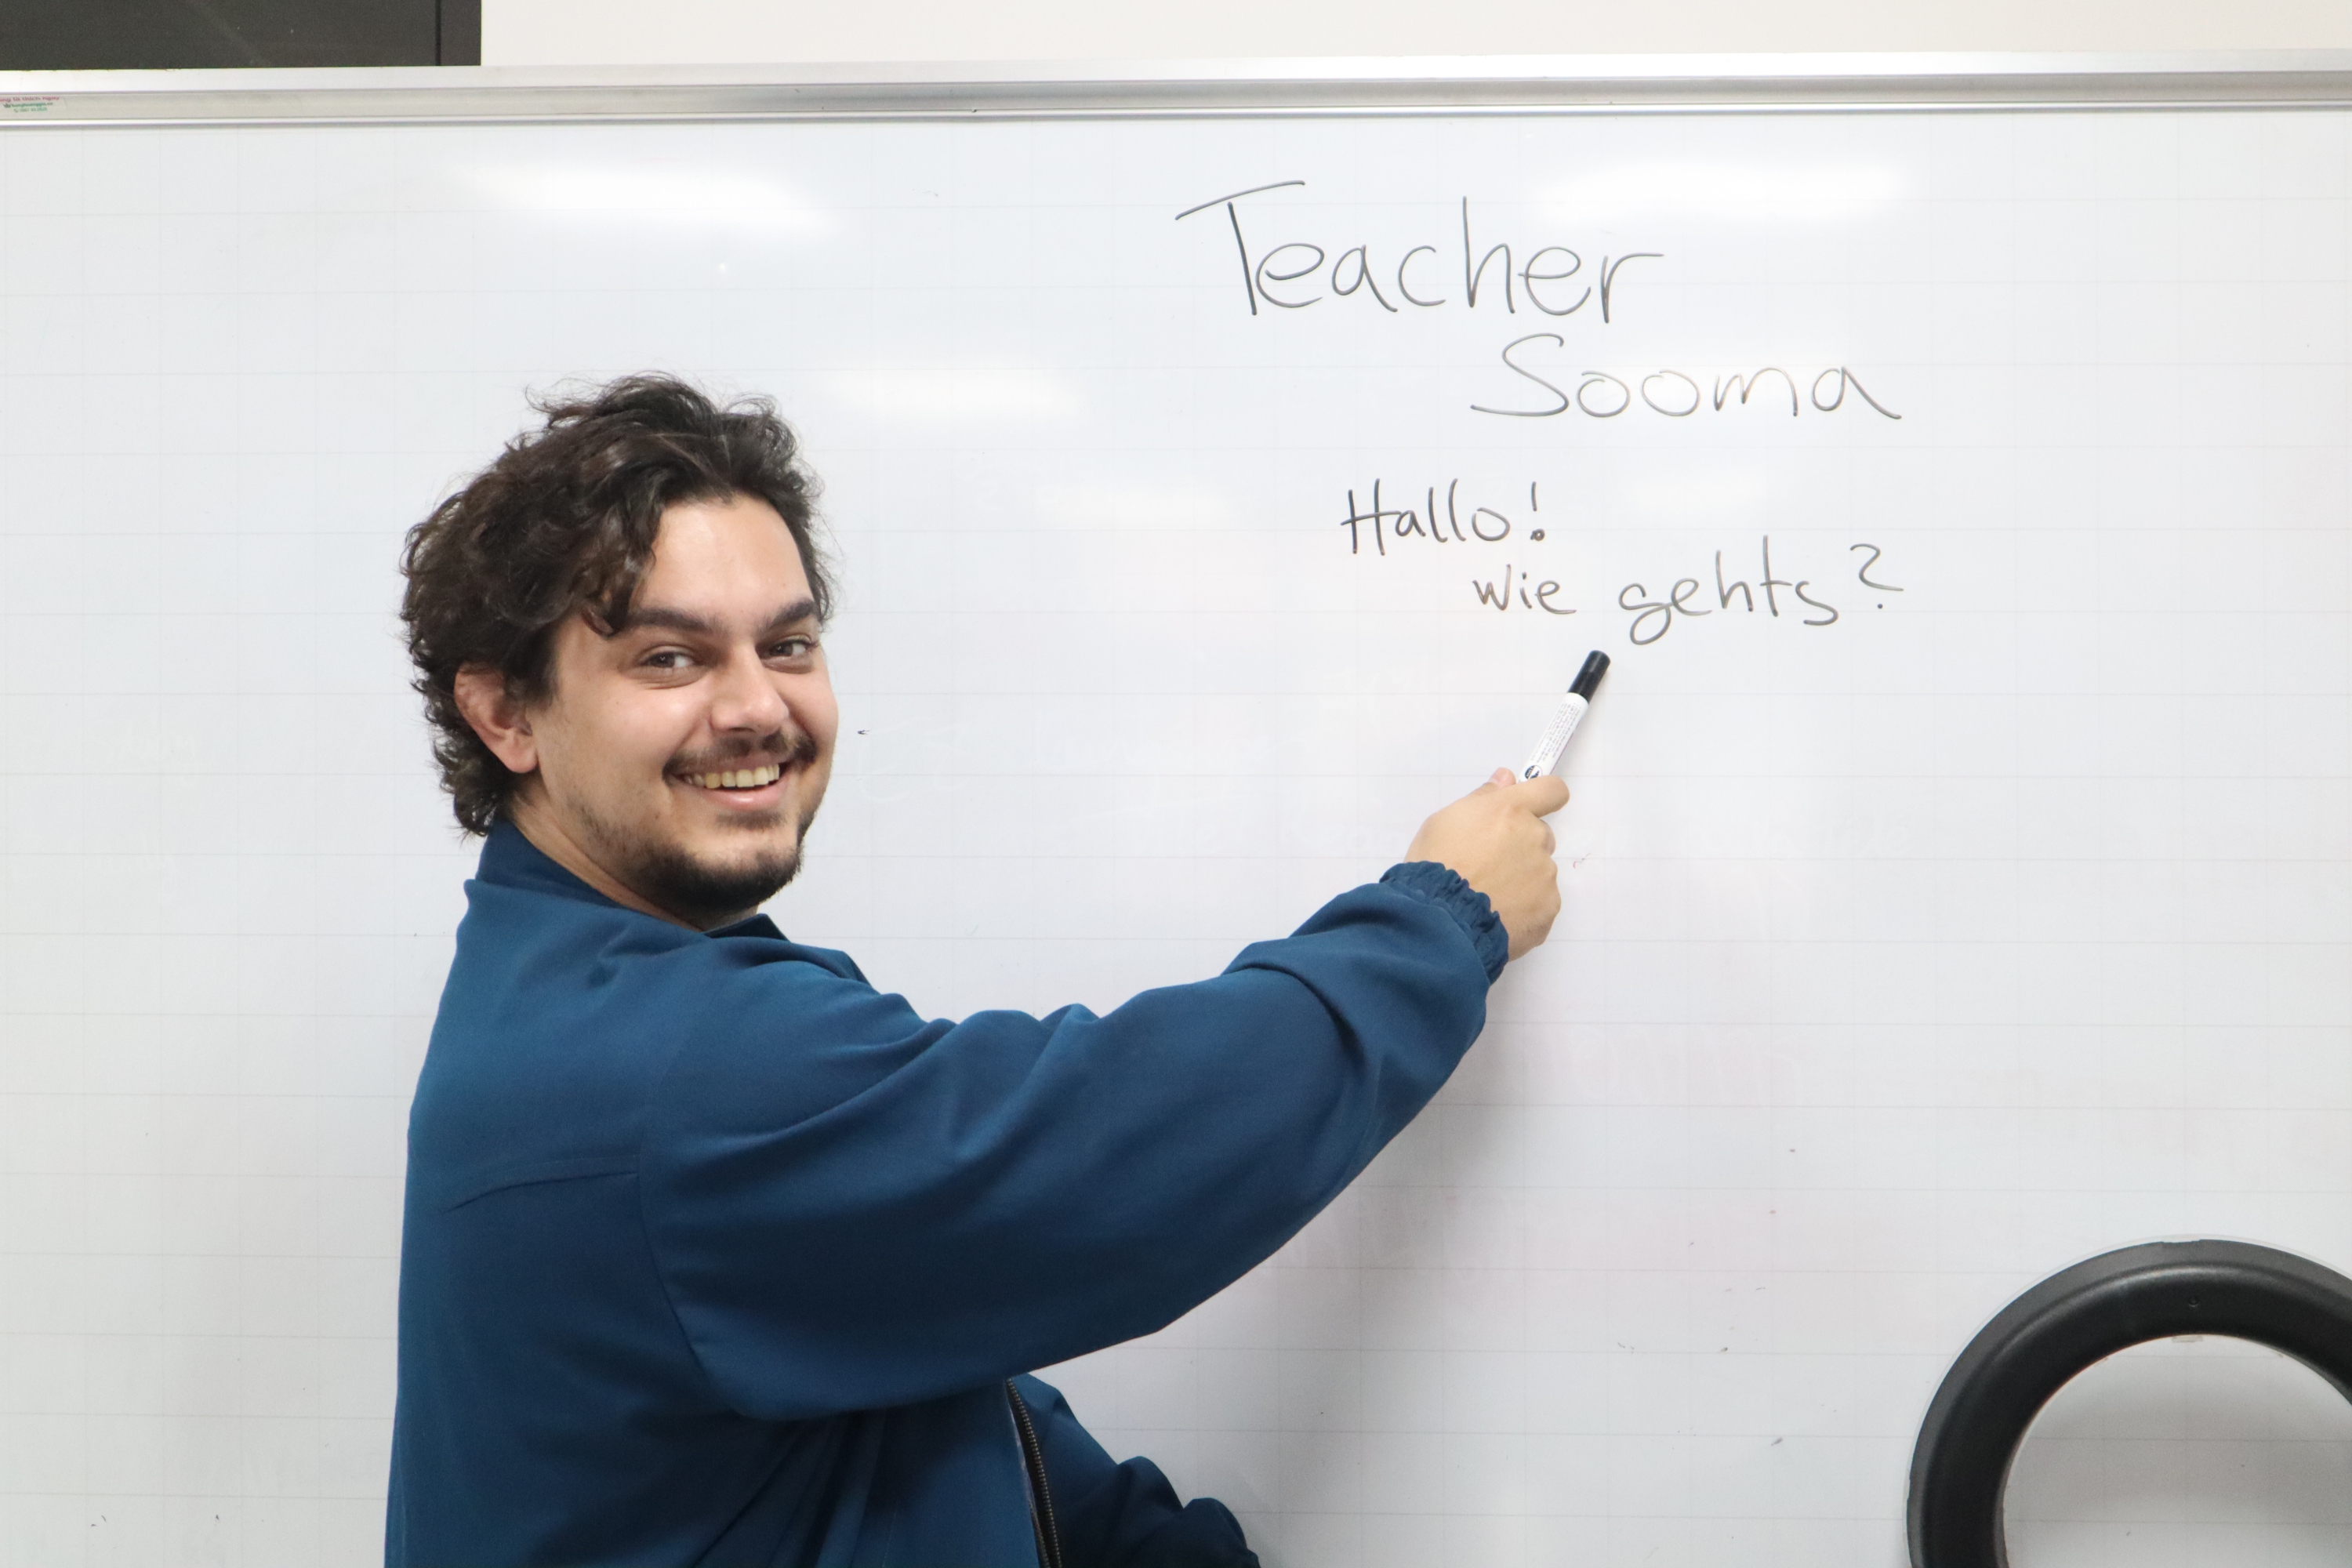 Teacher
Sooma
Hallo!
Wie gehts?